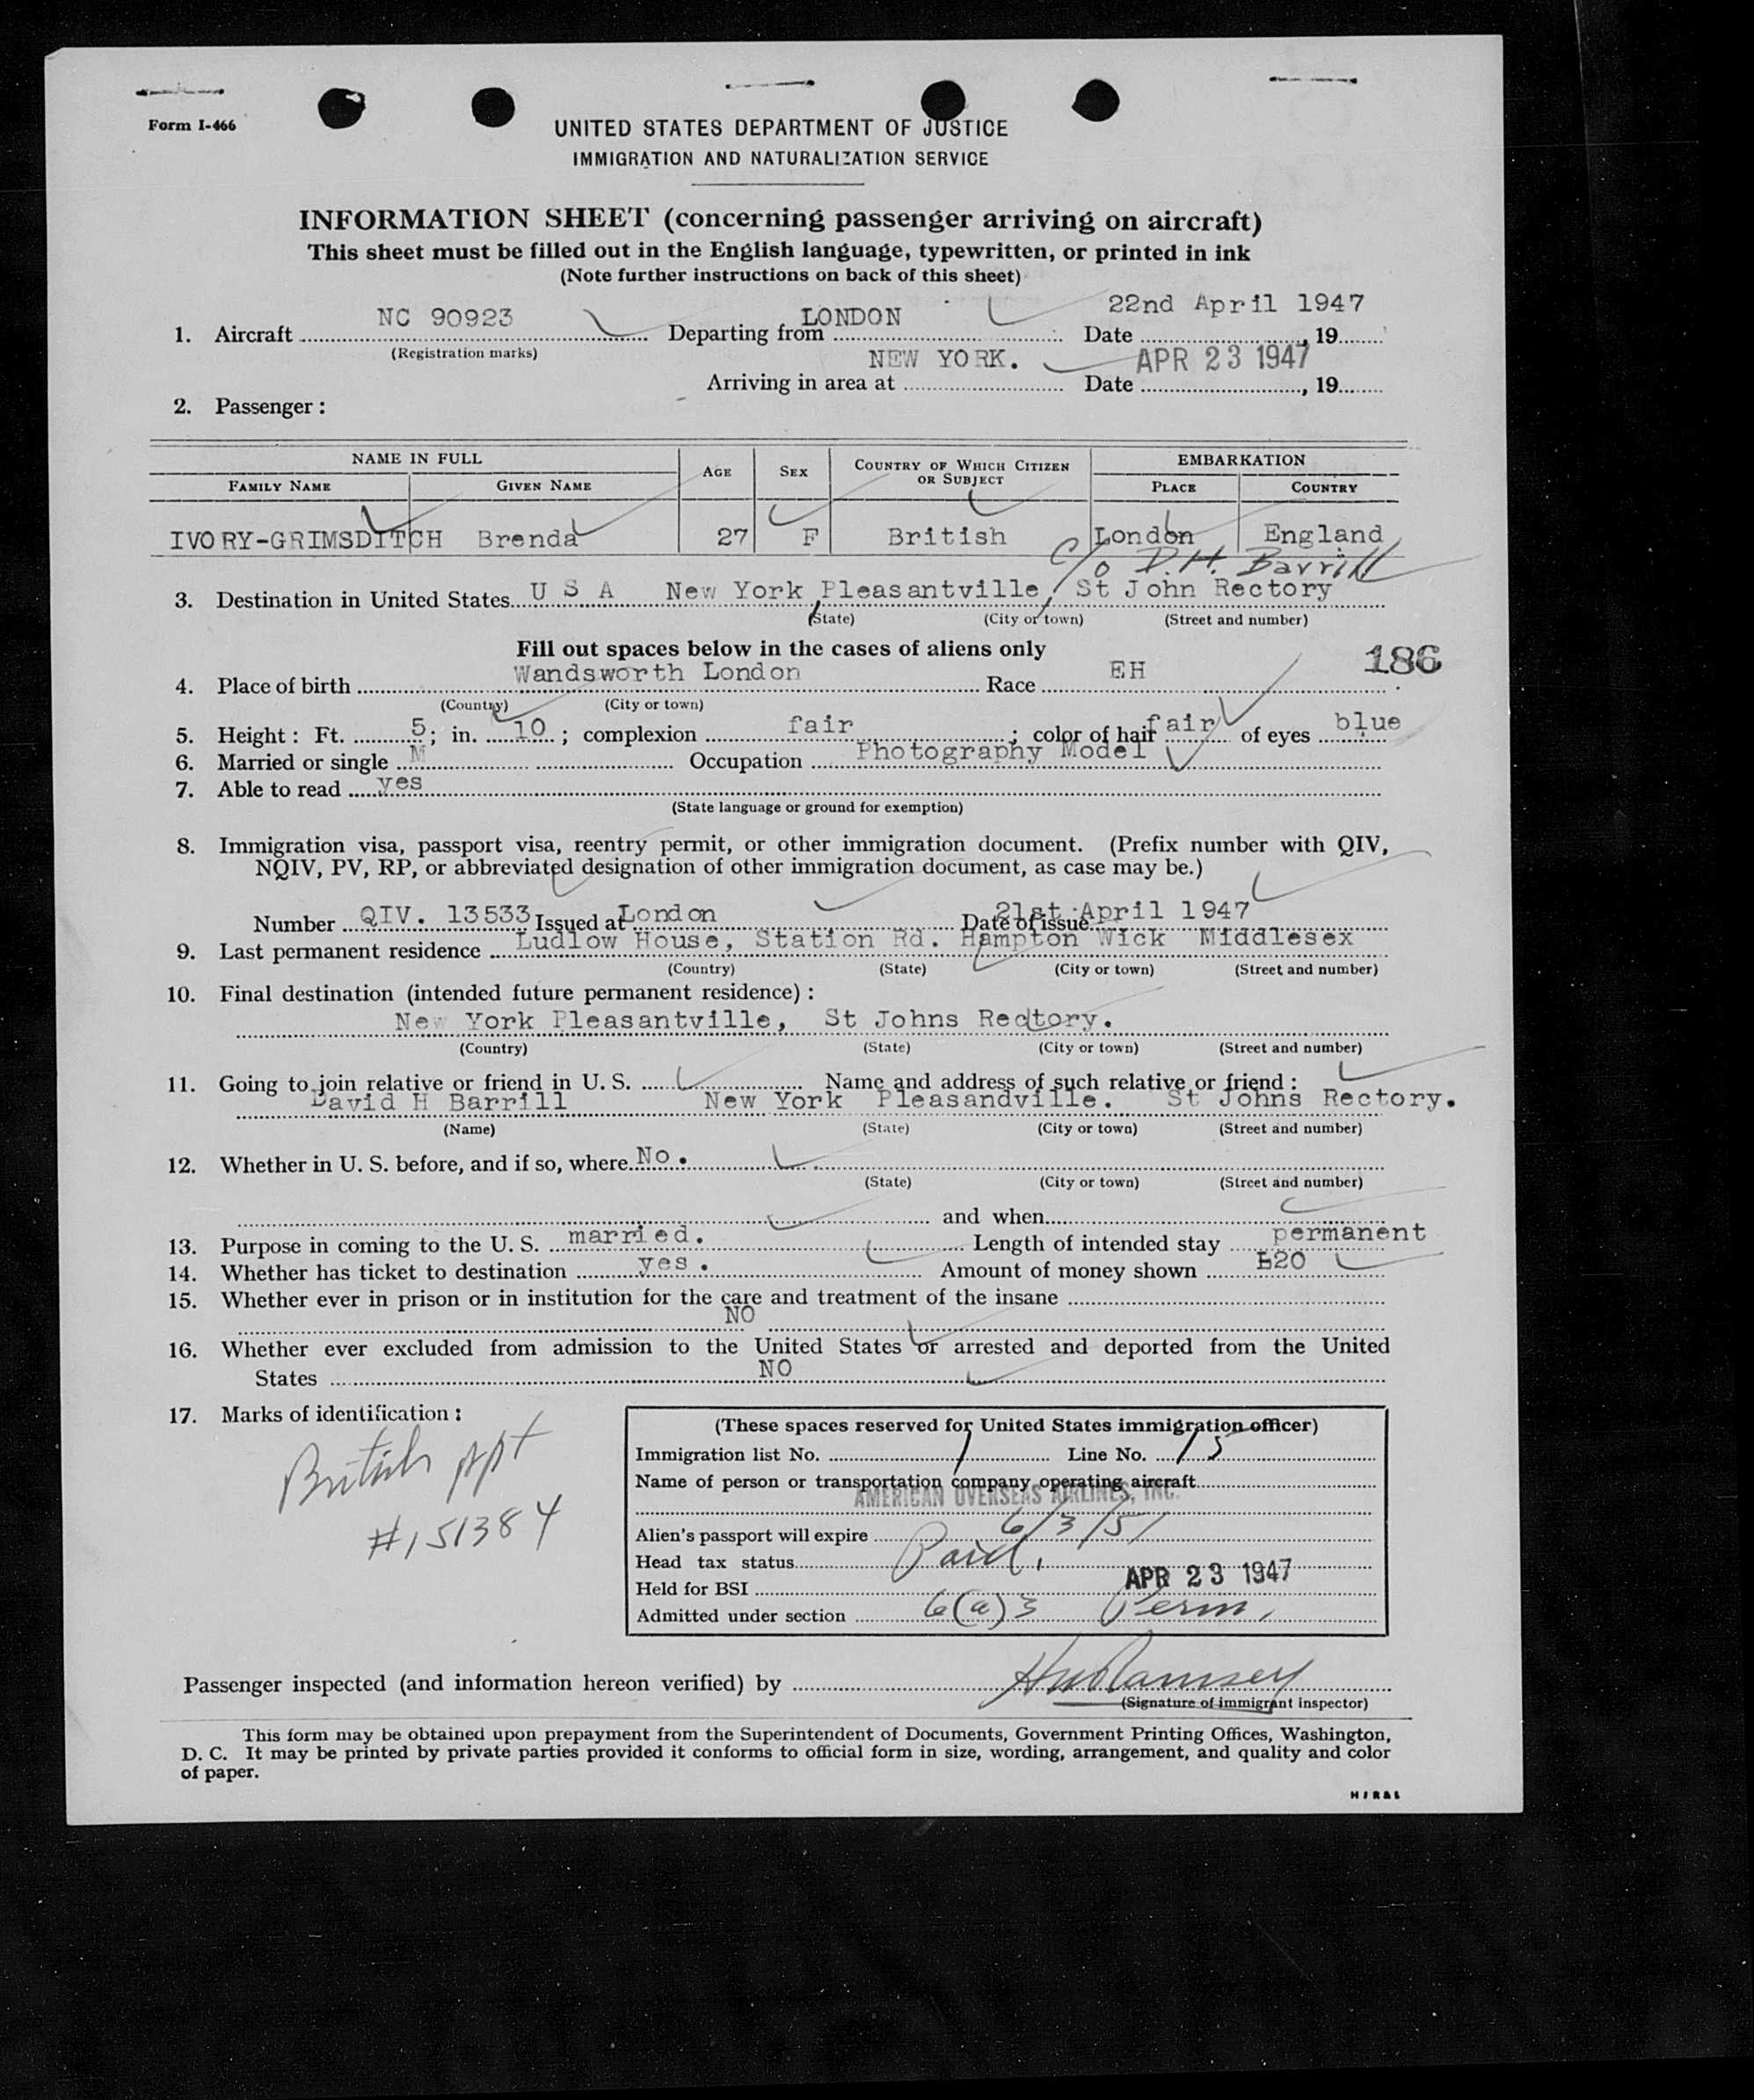 Form I-466
UNITED STATES DEPARTMENT OF JUSTICE
IMMIGRATION AND NATURALIZATION SERVICE
INFORMATION SHEET (concerning passenger arriving on aircraft)
This sheet must be filled out in the English language, typewritten, or printed in ink
(Note further instructions on back of this sheet)
1. Aircraft NC 90923 Departing from LONDON Date 22nd April 1947, 19
(Registration marks)
Arriving in area at NEW YORK. Date APR 23 1947, 19
2. Passenger:
NAME IN FULL AGE SEX COUNTRY OF WHICH CITIZEN OR SUBJECT EMBARKATION
FAMILY NAME GIVEN NAME PLACE COUNTRY
IVORY-GRIMSDITCH Brenda 27 F British London England
c/o D.H. Barrill
3. Destination in United States U S A New York Pleasantville, St John Rectory
(State) (City or town) (Street and number)
Fill out spaces below in the cases of aliens only
186
4. Place of birth Wandsworth London Race EH
(Country) (City or town)
5. Height: Ft. 5; in. 10; complexion fair; color of hair fair of eyes blue
6. Married or single M Occupation Photography Model
7. Able to read yes
(State language or ground for exemption)
8. Immigration visa, passport visa, reentry permit, or other immigration document. (Prefix number with QIV,
NQIV, PV, RP, or abbreviated designation of other immigration document, as case may be.)
Number QIV. 13533 Issued at London Date of issue 21st April 1947
9. Last permanent residence Ludlow House, Station Rd. Hampton Wick Middlesex
(Country) (State) (City or town) (Street and number)
10. Final destination (intended future permanent residence):
New York Pleasantville, St Johns Rectory.
(Country) (State) (City or town) (Street and number)
11. Going to join relative or friend in U. S. Name and address of such relative or friend:
David H Barrill New York Pleasandville. St Johns Rectory.
(Name) (State) (City or town) (Street and number)
12. Whether in U. S. before, and if so, where No.
(State) (City or town) (Street and number)
and when
13. Purpose in coming to the U. S. married. Length of intended stay permanent
14. Whether has ticket to destination yes. Amount of money shown £20
15. Whether ever in prison or in institution for the care and treatment of the insane
NO
16. Whether ever excluded from admission to the United States or arrested and deported from the United
States NO
17. Marks of identification:
British ppt
#151384
(These spaces reserved for United States immigration officer)
Immigration list No. 1 Line No. 15
Name of person or transportation company operating aircraft
AMERICAN OVERSEAS AIRLINES, INC.
Alien's passport will expire 6/3/51
Head tax status Paid.
Held for BSI APR 23 1947
Admitted under section 6(a)3 Perm.
Passenger inspected (and information hereon verified) by HW Ramsey
(Signature of immigrant inspector)
This form may be obtained upon prepayment from the Superintendent of Documents, Government Printing Offices, Washington,
D. C. It may be printed by private parties provided it conforms to official form in size, wording, arrangement, and quality and color
of paper.